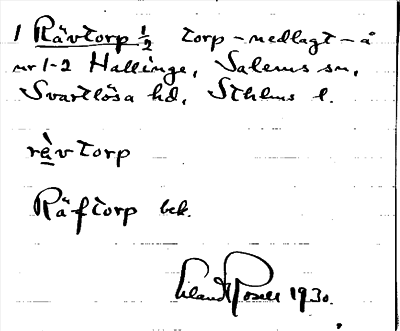 1 Rävtorp ½ torp – nedlagt – å
nr 1-2 Hallinge, Salems sn,
Svartlösa hd, Sthlms l.
rävtorp
Räftorp bek.
Erland Rosell 1930.